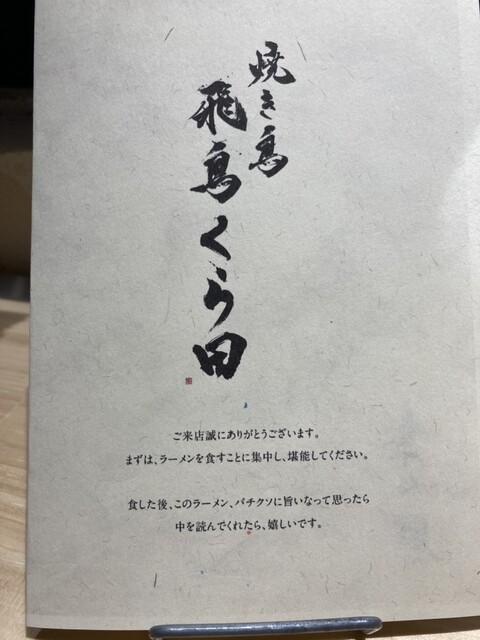 焼き鳥
飛鳥くら田
ご来店誠にありがとうございます。
まずは、ラーメンを食すことに集中し、堪能してください。
食した後、このラーメン、バチクソに旨いなって思ったら
中を読んでくれたら、嬉しいです。